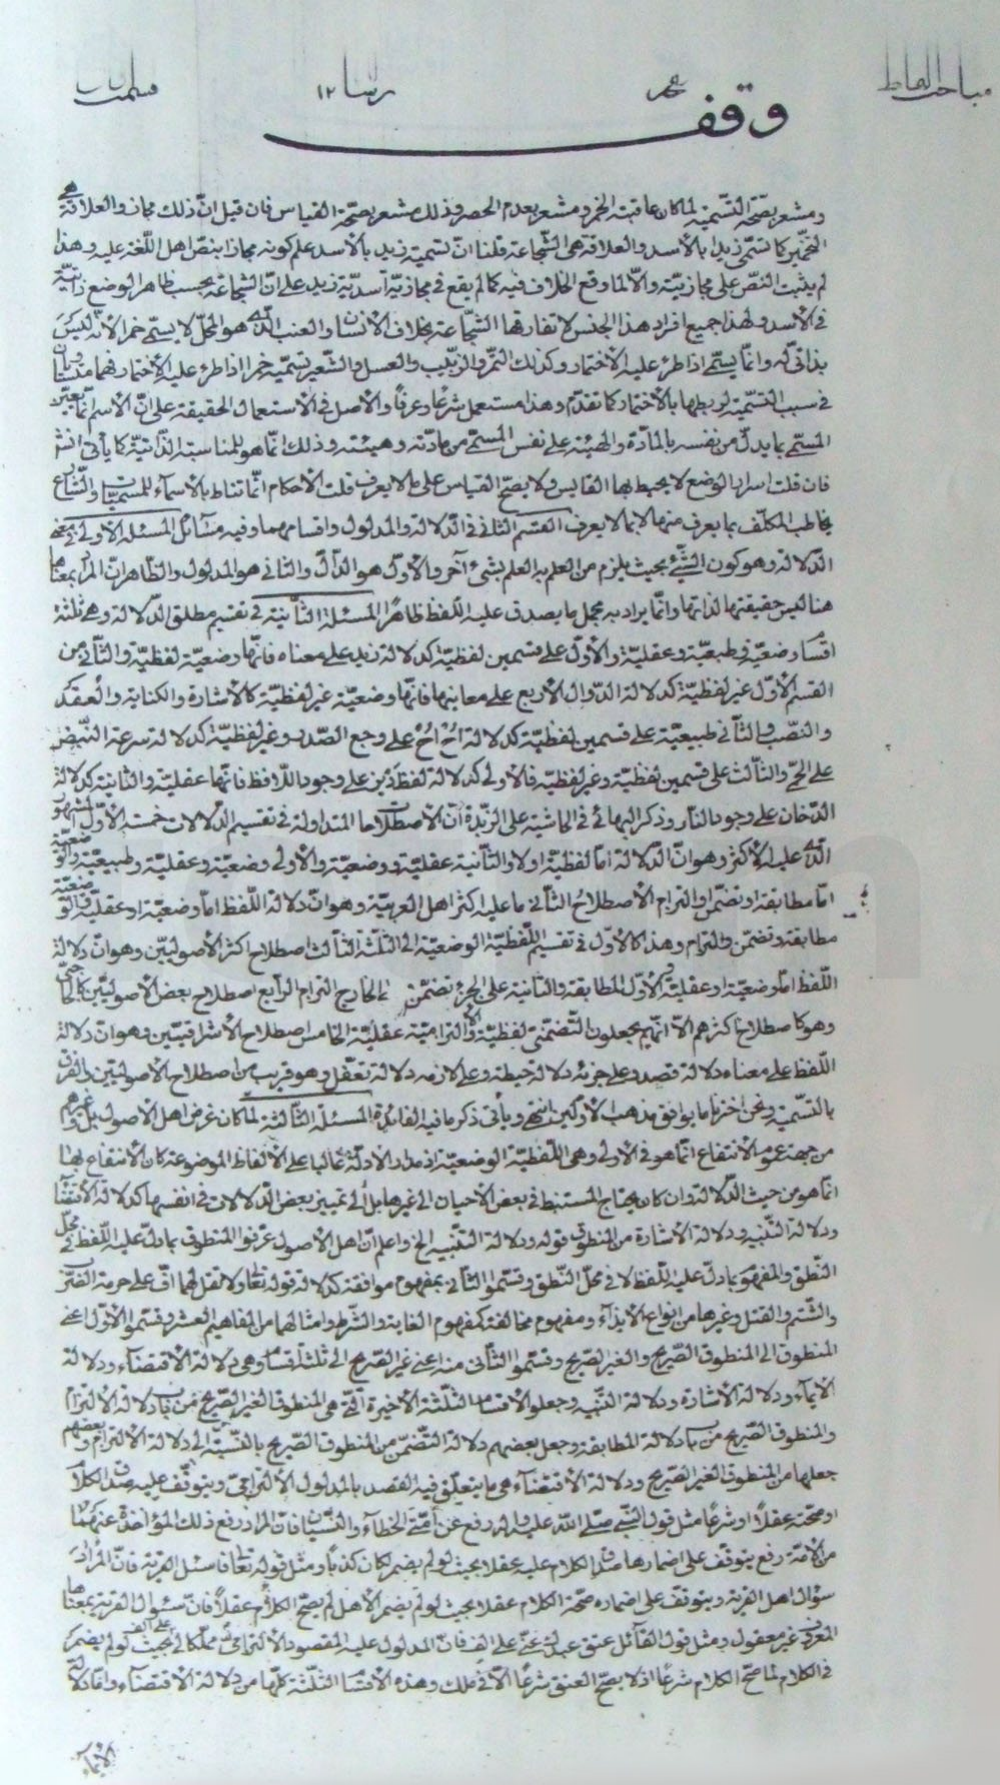 مباحث الفاظ رسا ١٢
وقف
ومشعر بصحّة التّسمية لما كان عاقبته الخمر ومشعر بعدم الحصر وذلك مشعر بصحّة القياس فان قيل انّ ذلك مجاز والعلاقة هى
التخمير كما تسمّى زيدا بالأسد والعلاقة هى الشّجاعة قلنا انّ تسمية زيد بالأسد علم كونه مجازا بنصّ اهل اللّغة عليه وهذا
لم يثبت النّصّ على مجازيّته والّا لما وقع الخلاف فيه كما لم يقع فى مجازيّة أسديّة زيد على انّ الشّجاعة بحسب ظاهر الوضع ذاتيّة
فى الأسد ولهذا جميع افراد هذا الجنس لا تفارقها الشّجاعة بخلاف الأنسان والعنب الّذى هو المحلّ لا يسمّى خمرا لأنّه ليس
بذاتىّ له وانّما يسمّى اذا طرء عليه الأختمار وكذلك التّمر والزّبيب والعسل والشّعير تسمّيه خمرا اذا طرء عليه الأختمار فهما متساويان
فى سبب التّسمية لربطها بالأختمار كما تقدّم وهذا مستعمل شرعًا وعرفًا والأصل فى الاستعمال الحقيقة على انّ الاسم انّما يعيّن
المسمّى بما يدلّ من نفسه بالمادّة والهيئة على نفس المسمّى من مادّته وهيئته وذلك انّما هو للمناسبة الذّاتيّة كما يأتى انش
فان قلت اسرار الوضع لا يحيط بها القايس ولا يصحّ القياس على ما لا يعرف قلت الأحكام انّما تناط بالأسمآء للمسمّيات والشّارع
يخاطب المكلّف بما يعرف منها لا بما لا يعرف القسم الثانى فى الدّلالة والمدلول واقسامهما وفيه مسآئل المسئلة الأولى فى معنى
الدّلالة وهو كون الشّئ بحيث يلزم من العلم به العلم بشئ آخر والأوّل هو الدّالّ والثانى هو المدلول والظّاهر انّ المراد بمعناها
هنا ليس حقيقتها لذاتها وانّما يراد به مجمل ما يصدق عليه اللّفظ ظاهرًا المسئلة الثّانية فى تقسيم مطلق الدّلالة وهى ثلثة
اقسام وضعيّة وطبعيّة وعقليّة والأوّل على قسمين لفظيّة كدلالة زيد على معناه فانّها وضعيّة لفظيّة والثّانى من
القسم الأوّل غير لفظيّة كدلالة الدّوالّ الأربع على معانيها فانّها وضعيّة غير لفظيّة كالأشارة والكتابة والعقد
والنصب والثّانى طبيعيّة على قسمين لفظيّة كدلالة اُحْ اُحْ على وجع الصّدر وغير لفظيّة كدلالة سرعة النّبض
على الحمّى والثالث على قسمين لفظيّة وغير لفظيّة فالأولى كدلالة لفظ ديز على وجود اللّافظ فانّها عقليّة والثانية كدلالة
الدّخان على وجود النّار وذكر البهائى فى الحاشية على الزّبدة انّ الأصطلاحات المتداولة فى تقسيم الدّلالات خمسة الأوّل المشهور
الّذى عليه الأكثر وهو انّ الدّلالة امّا لفظيّة اولا والثّانية عقليّة ووضعيّة والأولى وضعيّة وعقليّة وطبيعيّة والوضعيّة
امّا مطابقة او تضمّن او التزام الأصطلاح الثّانى ما عليه اكثر اهل العربيّة وهو انّ دلالة اللّفظ امّا وضعيّة او عقليّة والوضعيّة
مطابقة وتضمّن والتزام وهذا كالأوّل فى تقسيم اللّفظيّة الوضعيّة الى الثّلثة الثالث اصطلاح اكثر الأصوليّين وهو انّ دلالة
اللّفظ امّا وضعيّة او عقليّة والأوّل المطابقة والثانية على الجزء تضمّن والخارج التزام الرّابع اصطلاح بعض الأصوليّين كالحاجبى
وهو كاصطلاح اكثرهم الّا انّهم يجعلون التّضمّنى لفظيّة والالتزاميّة عقليّة الخامس اصطلاح الأشراقيّين وهو انّ دلالة
اللّفظ على معناه دلالة قصد وعلى جزئه دلالة حيطة وعلى لازمه دلالة تعقّل وهو قريب من اصطلاح الأصوليّين والفرق
بالتّسمية ونحن اخترنا ما يوافق مذهب الأوّلين انتهى ويأتى ذكر ما فيه الفائدة المسئلة الثّالثة لمّا كان غرض اهل الأصول بل وغيرهم
من جهة عموم الأنتفاع انّما هو فى الأولى وهى اللّفظيّة الوضعيّة اذ مدار الأدلّة غالبا على الألفاظ الموضوعة كان الأنتفاع بها
انّما هو من حيث الدّلالة وان كان يحتاج المستنبط فى بعض الأحيان الى غيرها بل الى تمييز بعض الدّلالات فى انفسها كدلالة الأقتضآء
ودلالة التّنبيه ودلالة الأشارة من المنطوق قوله ودلالة التّنبيه الخ واعلم انّ اهل الأصول عرّفوا المنطوق بما دلّ عليه اللّفظ فى محلّ
النّطق والمفهوم بما دلّ عليه اللّفظ لا فى محلّ النّطق وقسّموا الثّانى بمفهوم موافقة كدلالة قوله تعالى ولا تقل لهما افّ على حرمة الضّرب
والشّتم والقتل وغيرها من انواع الأيذآء ومفهوم مخالفة كمفهوم الغاية والشّرط وامثالهما من المفاهيم العشر وقسّموا الأوّل اعنى
المنطوق الى المنطوق الصّريح والغير الصّريح وقسّموا الثّانى منه اعنى غير الصّريح الى ثلثة اقسام وهى دلالة الأقتضآء ودلالة
الأيمآء ودلالة الأشارة ودلالة التّنبيه وجعلوا الأقسام الثّلثة الأخيرة الّتى هى المنطوق الغير الصّريح من باب دلالة الألتزام
والمنطوق الصّريح من باب دلالة المطابقة وجعل بعضهم دلالة التّضمّن من المنطوق الصّريح بالنّسبة الى دلالة الألتزام وبعضهم
جعلها من المنطوق الغير الصّريح ودلالة الأقتضآء هى ما يتعلّق فيه القصد بالمدلول الألتزامىّ ويتوقّف عليه صدق الكلام
او صحّته عقلًا او شرعًا مثل قول النّبىّ صلّى اللّه عليه وآله رفع عن اُمّتى الخطآء والنّسيان فانّ المراد رفع ذلك المؤاخذة عنهما
من الأمّة رفع يتوقّف على اضمارها صدق الكلام عليه عقلا بحيث لو لم يضمر لكان كذبًا ومثل قوله تعالى فاسئل القرية فانّ المراد
سؤال اهل القرية ويتوقّف على اضماره صحّة الكلام عقلا بحيث لو لم يضمر الأهل لم يصحّ الكلام عقلًا فانّ سئوال القرية بمعناها
المعروف غير معقول ومثل قول القائل عتق عبدك عنّى على الف فانّ المدلول عليه المقصود الألتزامىّ مملّكا لى على الف بحيث لو لم يضمر
فى الكلام لما صحّ الكلام شرعًا اذ لا يصحّ العتق شرعًا الّا فى ملك وهذه الأقسام الثّلثة كلّها من دلالة الأقتضآء وامّا دلالة
الأيمآء